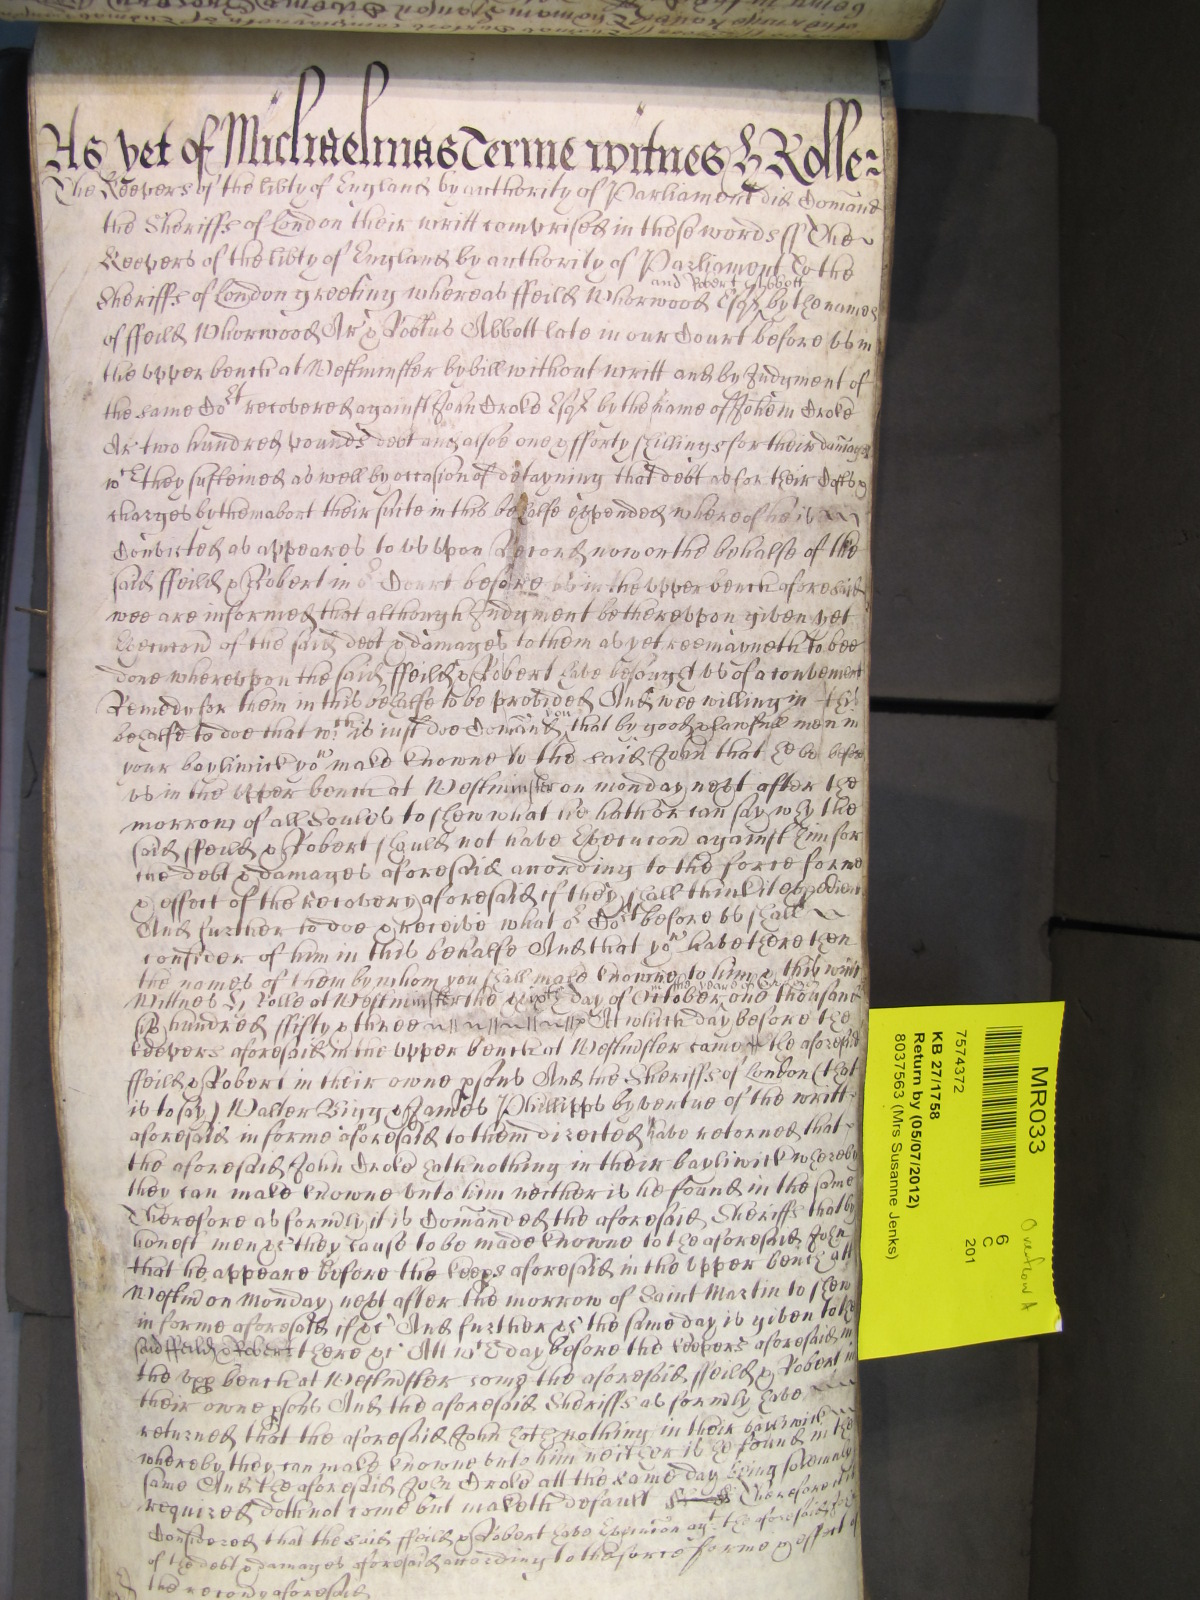 As yet of Michaelmas Terme witnes H Rolle
The Keepers of the libty of England by authority of Parliament did Comand
the Sheriffs of London their writt comprised in these words ss The
Keepers of the libty of England by authority of Parliament To the
Sheriffs of London greeting whereas ffeild Whorwood and Robert Abbott Esqrs by the names
of ffeild Whorwood Ar & Robtus Abbott late in our Court before us in
the upper bench at Westminster by bill without writt and by Judgment of
the same Cort recovered against John Croke Esqr by the name of Johem Croke
Ar two hundred pounds debt and alsoe one & fforty shillings for their damages
wch they susteined as well by occasion of detayning that debt as for their Costs &
charges by them about their suite in this behalfe expended whereof he is
Convicted as appeares to us upon Record now on the behalfe of the
said ffeild & Robert in or Court before us in the upper bench aforesaid
wee are informed that although Judgment be thereupon given yet
Execucon of the said debt & damages to them as yet remayneth to bee
done whereupon the said ffeild & Robert have besought us of a convenient
Remedy for them in this behalfe to be provided And wee willing in this
behalfe to doe that wch is just doe Comand you that by good & lawfull men in
your bayliwick you make knowne to the said John that he be before
us in the upper bench at Westminster on monday next after the
morrow of all Soules to shew what he hath or can say why the
said ffeild & Robert should not have Execucon against him for
the debt & damages aforesaid according to the force forme
& effect of the Recovery aforesaid if they shall think it expedient
And further to doe & receive what or Cort before us shall
consider of him in this behalfe And that you have there then
the names of them by whom you shall make knowne to him & this writt
Wittnes H Rolle at Westminster the day of October in the yeare of our one thousand
six hundred ffifty & three At which day before the
keepers aforesaid in the upper bench at Westmster came the aforesaid
ffeild & Robert in their owne psons And the Sheriffs of London (that
is to say) Walter Bigg & James Phillipps by vertue of the writt
aforesaid in forme aforesaid to them directed have retorned that
the aforesaid John Croke hath nothing in their bayliwick whereby
they can make knowne unto him neither is he found in the same
Therefore as formrly it is Comanded the aforesaid Sheriffs that by
honest men &c they cause to be made knowne to the aforesaid John
that he appeare before the keeps aforesaid in the upper bench att
Westm on Monday next after the morrow of Saint Martin to shew
in forme aforesaid if &c And further &c the same day is given to the
said ffeild & Robert there &c Att wch day before the keepers aforesaid in
the upp bench at Westmster come the aforesaid ffeild & Robert in
their owne psons And the aforesaid Sheriffs as formrly have
returned that the aforesaid John hath nothing in their bayliwick
whereby they can make knowne unto him neither is he found in the
same And the aforesaid John Croke att the same day being solemnly
required doth not come but maketh default Therefore it is
Considered that the said ffeild & Robert have Execucon agt the aforesaid John
of the debt & damages aforesaid according to the force forme & effect of
the recovy aforesaid
MR033
7574372
KB 27/1758
Return by (05/07/2012)
8037563 (Mrs Susanne Jenks)
6
C
201
Overflow A